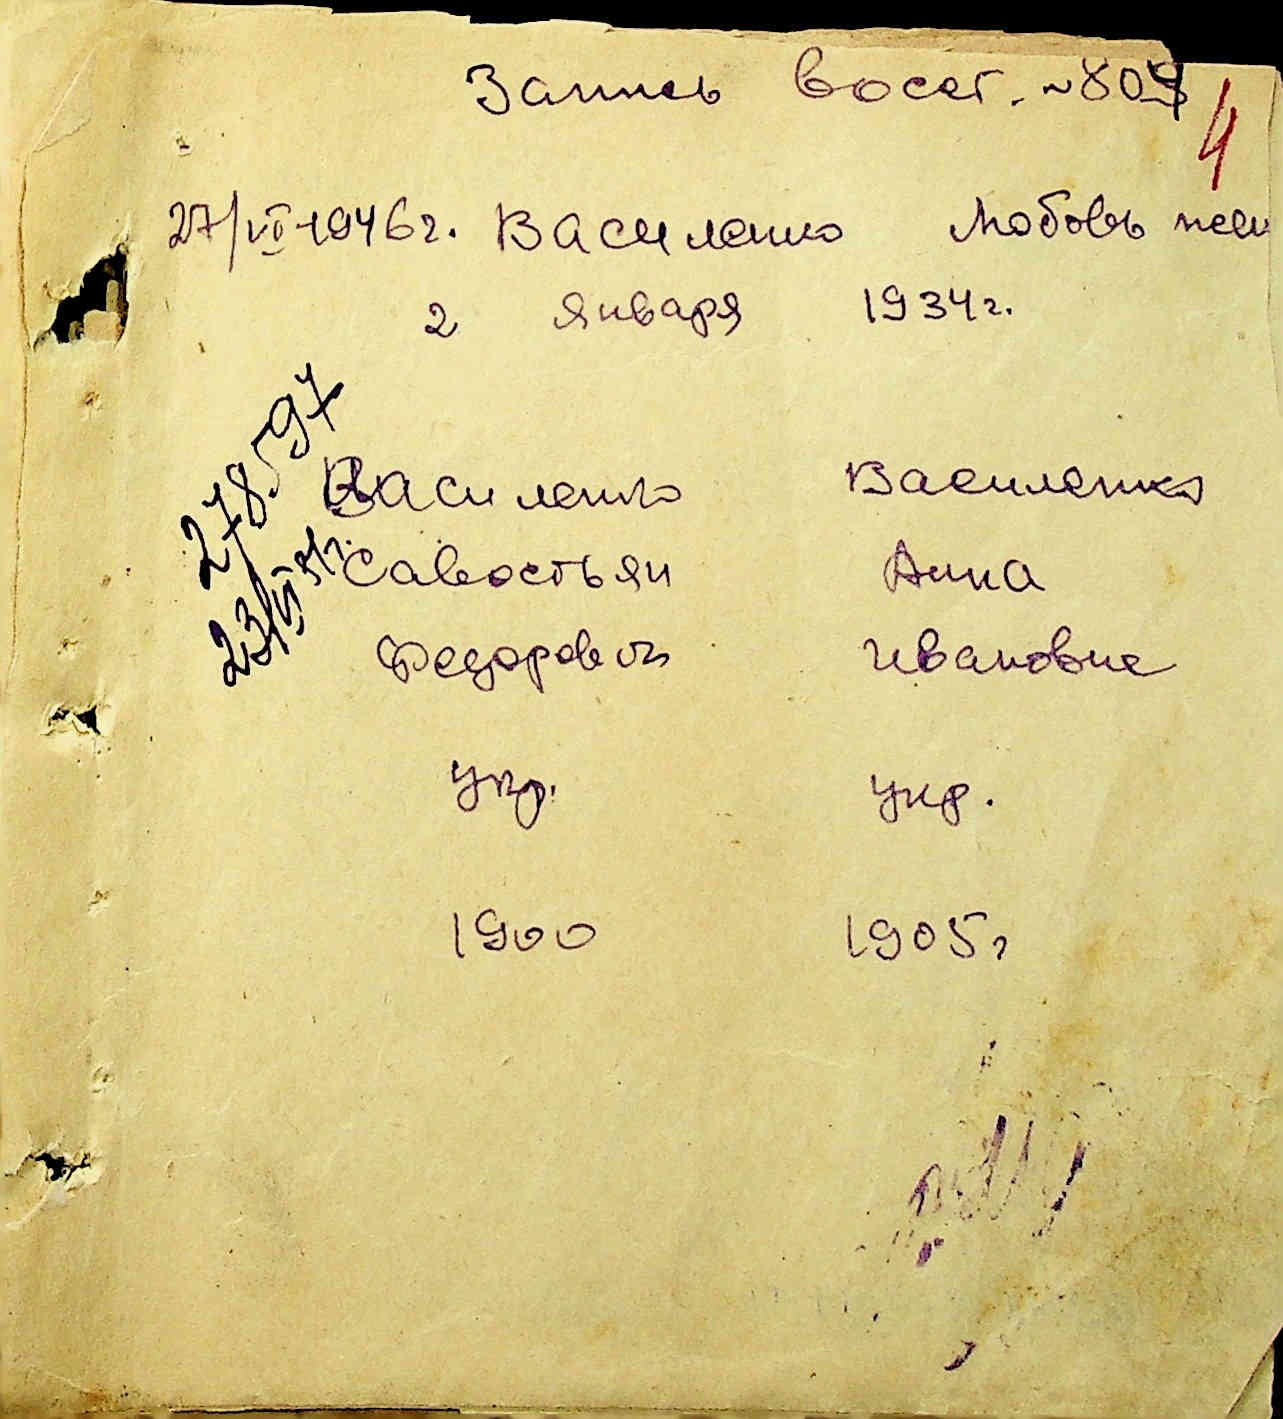 Запись восст. №809
4
27/VI-1946г. Василенко Любовь жен
2 января 1934г.
278597
23/VI 51г.
Василенко Василенко
Савостьян Анна
Федорович Ивановна
укр. укр.
1900 1905г